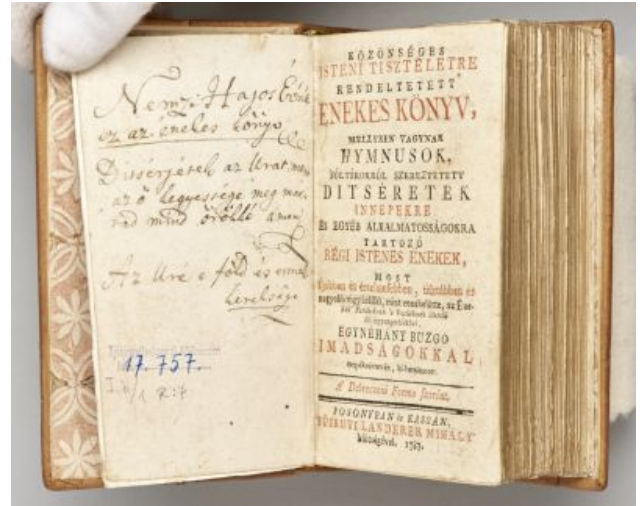 Nemzs Hajos
ez az énekes könyv
Ditsérjétek az Urat, mert
az ő kegyessége meg ma-
rad mind örökké amen
Az Uré e föld és ennek
kereksége
17. 757.
KÖZÖNSÉGES
ISTENI TISZTELETRE
RENDELTETETT
ÉNEKES KÖNYV,
MELLYBEN VAGYNAK
HYMNUSOK,
SÓLTÁROKBÓL SZEREZTETETT
DITSÉRETEK
INNEPEKRE
ÉS EGYÉB ALKALMATOSSÁGOKRA
TARTOZÓ
RÉGI ISTENES ÉNEKEK,
MOST
Ujabban és értelmesebben, tisztábban és
EGYNEHÁNY BUZGO
IMADSÁGOKKAL
A Debreczeni Forma szerint.
POSONYBAN és KASSÁN,
FÜSKUTI LANDERER MIHÁLY
költségével. 1787.